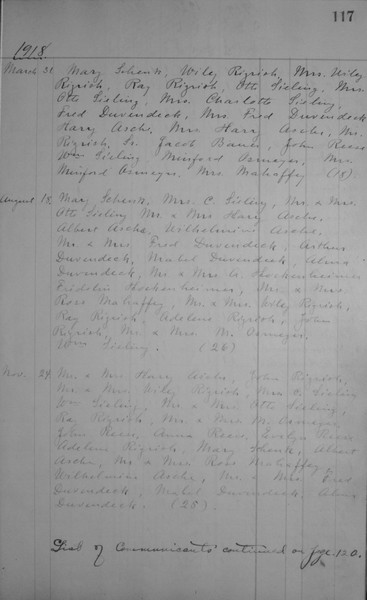 117
1918.
March 31. Mary Schenk, Wiley Rigrish, Mrs. Wiley
Rigrish, Ray Rigrish, Otto Sieling, Mrs.
Otto Sieling, Mrs. Charlotte Sieling,
Fred Duvendeck, Mrs. Fred Duvendeck
Harry Asche, Mrs Harry Asche, Mr.
Rigrish, Sr. Jacob Bauer, John Reese
Wm Sieling, Minford Asmeyer, Mrs.
Minford Asmeyer, Mrs. Mahaffey (18)
August 18, Mary Schenk, Mrs. C. Sieling, Mr. & Mrs.
Otto Sieling Mr. & Mrs Harry Asche,
Albert Asche, Wilhelmine Asche,
Mr. & Mrs. Fred Duvendeck, Arthur
Duvendeck, Mabel Duvendeck, Alma
Duvendeck, Mr. & Mrs. A.
Fridolin Mr. & Mrs.
Ross Mahaffey, Mr. & Mrs. Wiley Rigrish,
Ray Rigrish, Adelene Rigrish, John
Rigrish, Mr. & Mrs. M. Asmeyer,
Wm Sieling. (26)
Nov. 24. Mr. & Mrs Harry Asche, John Rigrish,
Mr. & Mrs. Wiley Rigrish, Mrs. C. Sieling
Wm Sieling, Mr. & Mrs Otto Sieling,
Ray Rigrish, Mr. & Mrs M. Asmeyer,
John Reese, Anna Reese, Evelyn Reese
Adelene Rigrish, Mary Schenk, Albert
Asche, Mr. & Mrs Ross Mahaffey,
Wilhelmine Asche, Mr. & Mrs. Fred
Duvendeck, Mabel Duvendeck, Alma
Duvendeck. (25).
List of Communicants continued on page 120.